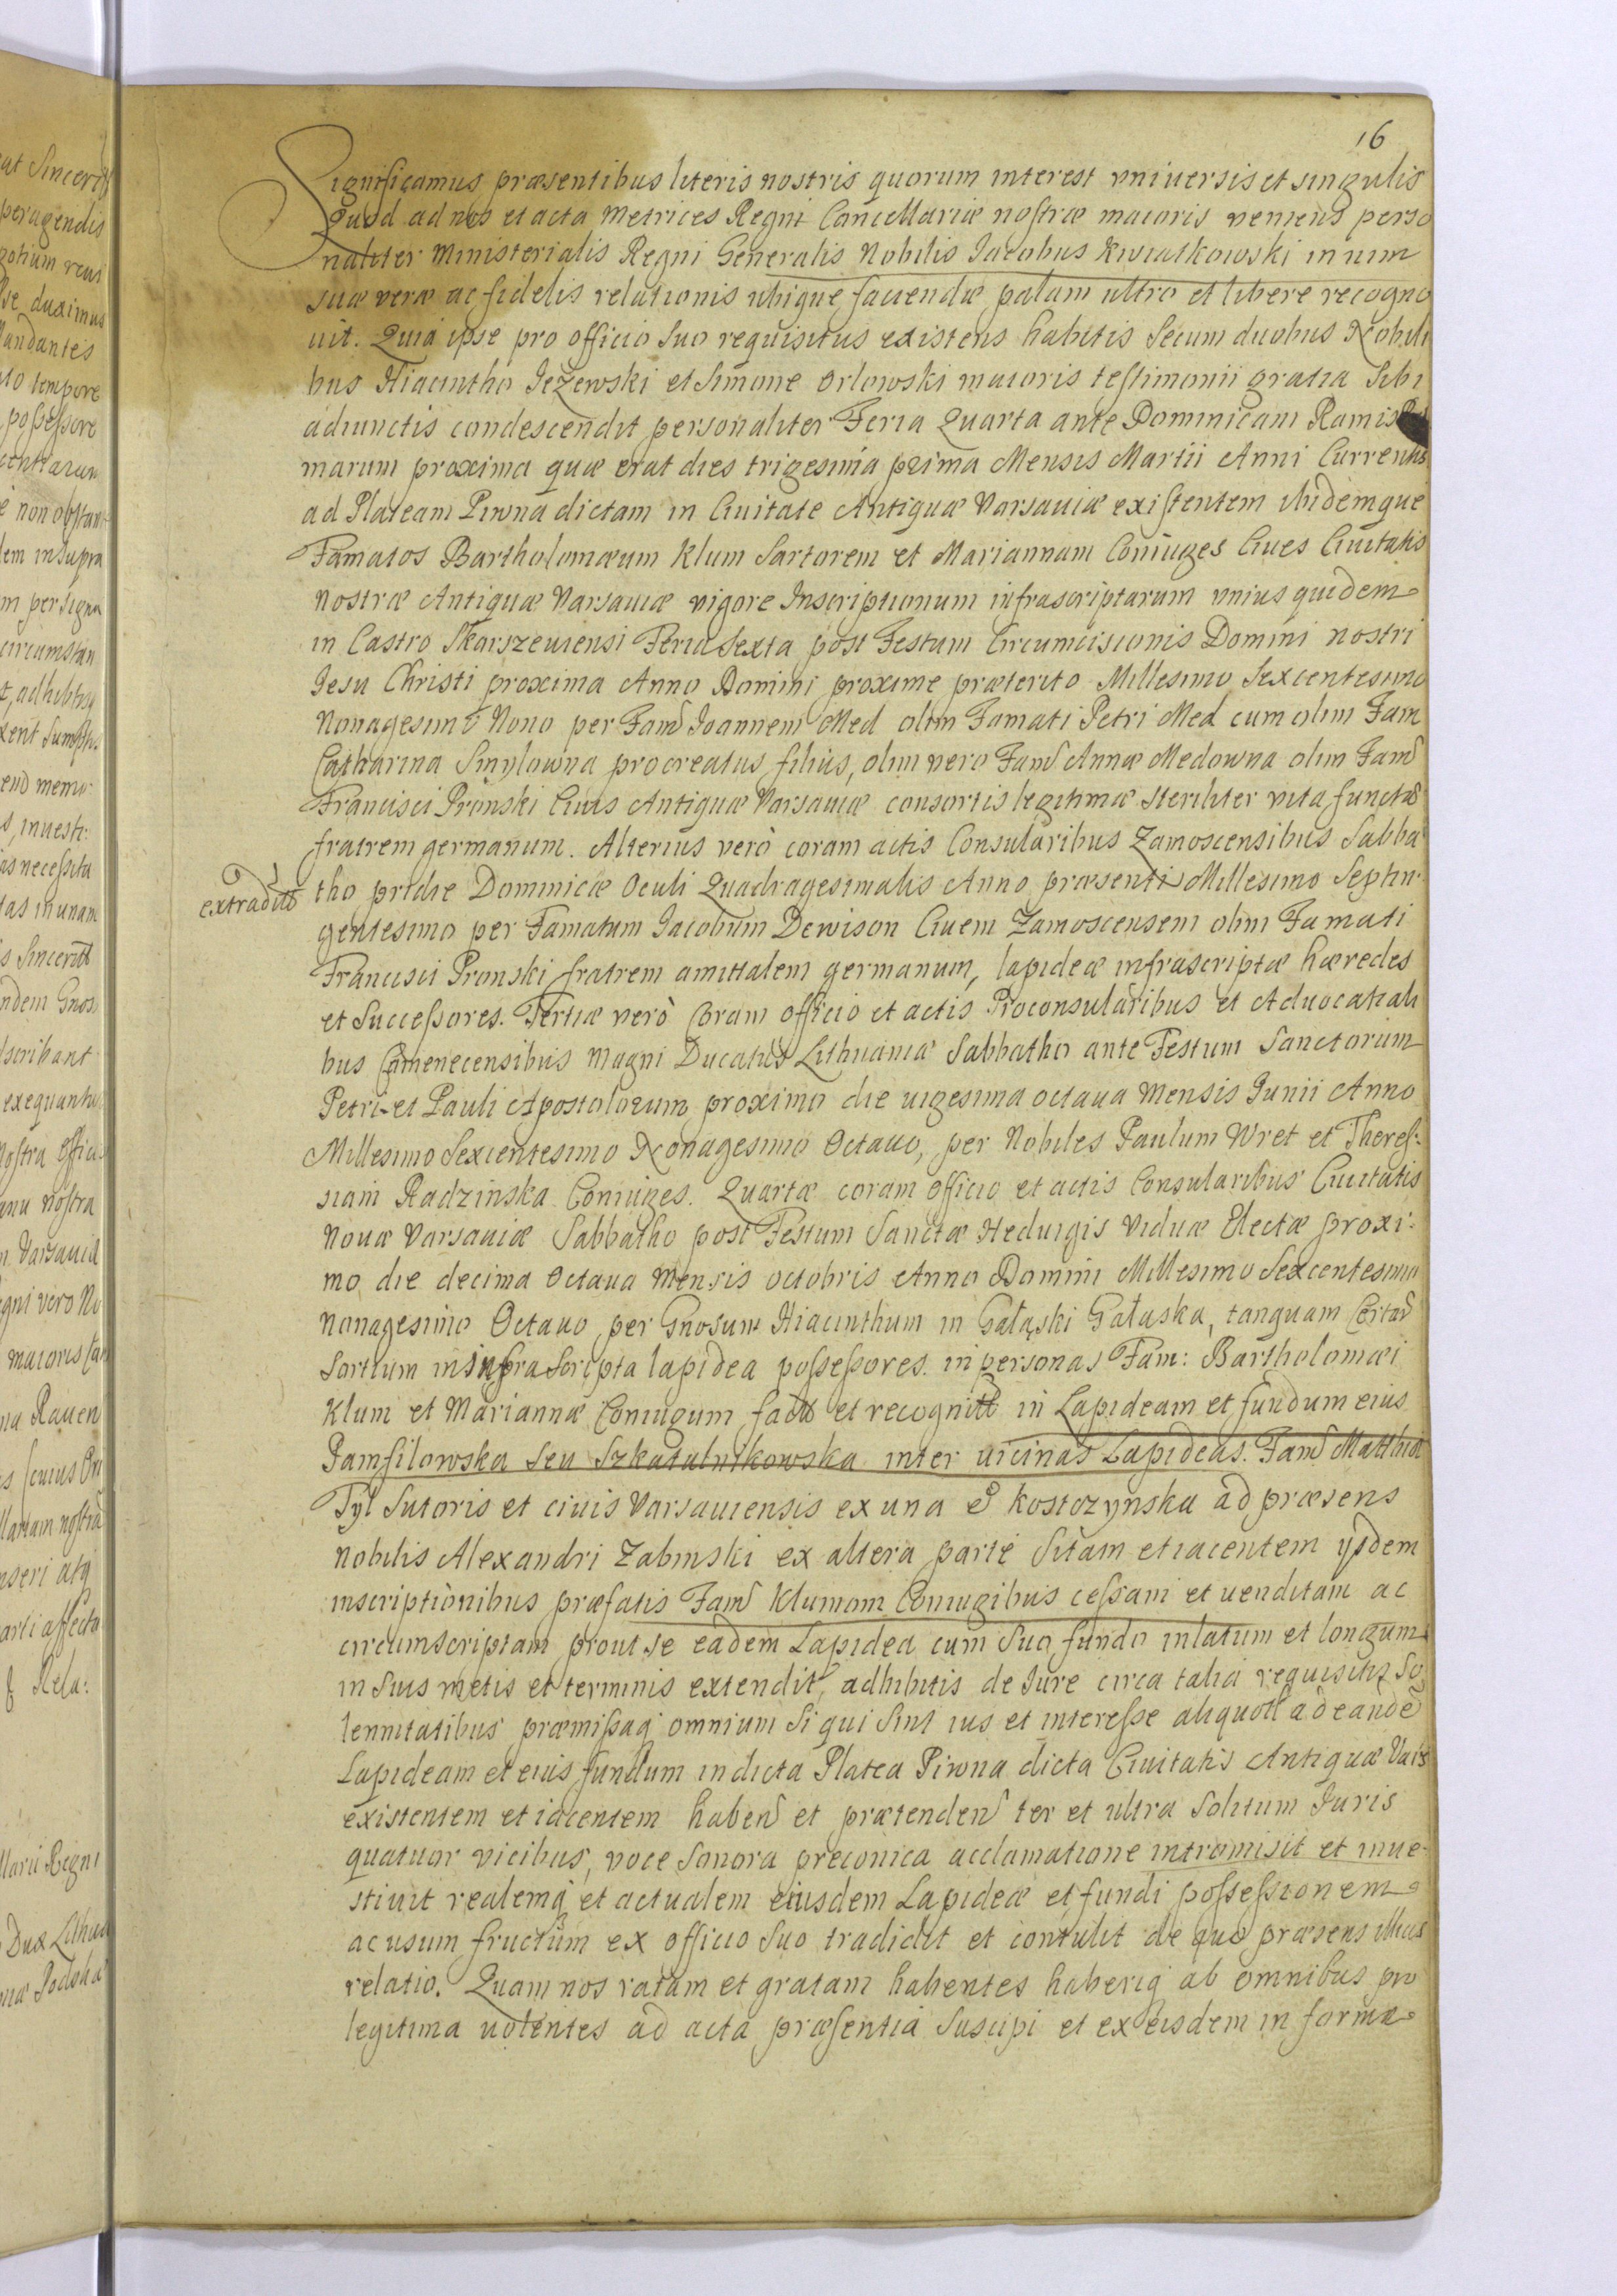 16
Significamus præsentibus literis nostris quorum interest vniuersis et singulis
Quod ad nos et acta Metrices Regni Cancellariæ nostræ maioris veniens perso
naliter Ministerialis Regni Generalis Nobilis Jacobus Kwiatkowski in vim
suæ veræ ac fidelis relationis ubique fauendæ palam ultro et libere recogno
uit. Quia ipse pro officio suo requisitus existens habitis secum duobus Nobili
bus Hiacintho Jeżewski et Simone Orlowski maioris testimonii gratia sibi
adiunctis condescendit personaliter Feria Quarta ante Dominicam Ramis
marum proxima quæ erat dies trigesima prima Mensis Martii Anni Currentis
ad Plateam Piwna dictam in Ciuitate Antiquæ Varsauiæ existentem ibidemque
Famatos Bartholomæum Klum Sartorem et Mariannam Coniuges Ciues Ciuitatis
nostræ Antiquæ Varsauiæ vigore Inscriptionum infrascriptarum vnius quidem
in Castro Skarszeuiensi Feria Sexta post Festum Circumcisionis Domini nostri
Jesu Christi proxima Anno Domini proxime præterito Millesimo Sexcentesimo
Nonagesimo Nono per Fam Joannem Med olim Famati Petri Med cum olim Fam
Catharina Smylowna procreatus filius, olim vero Fam Annæ Medowna olim Fam
Francisci Pronski Ciuis Antiquæ Varsauiæ consortis legitimæ steriliter vita functæ
fratrem germanum. Alterius verò coram actis Consularibus Zamoscensibus Sabba
extradit
tho pridie Dominicæ Oculi Quadragesimalis Anno præsenti Millesimo Septin
gentesimo per Famatum Jacobum Dewison Ciuem Zamoscensem olim Famati
Francisci Pronski fratrem amitalem germanum, lapideæ infrascriptæ hæredes
et Successores. Tertiæ verò Coram officio et actis Proconsularibus et Aduocatiali
bus Camenecensibus Magni Ducatus Lithuaniæ Sabbatho ante Festum Sanctorum
Petri et Pauli Apostolorum proximo die uigesima octaua Mensis Junii Anno
Millesimo Sexcentesimo Nonagesimo Octauo, per Nobiles Paulum Wret et Theres-
siam Radzinska Coniuges. Quartæ coram officio et actis Consularibus Ciuitatis
Nouæ Varsauiæ Sabbatho post Festum Sanctæ Heduigis Viduæ Electæ proxi-
mo die decima Octaua Mensis Octobris Anno Domini Millesimo Sexcentesimo
Nonagesimo Octauo per Gnosum Hiacinthum in Gałąski Gałaska, tanquam Certar
Sortium in infra Scripta lapidea possessores. in personas Fam: Bartholomæi
Klum et Mariannæ Coniugum fact et recognit in Lapideam et fundum eius
Pamfilowska seu Szkatulnikowska inter uicinas Lapideas. Fam Matthiæ
Tyl Sutoris et ciuis Varsauiensis ex una et Kostczynska ad præsens
Nobilis Alexandri Zabinski ex altera parte sitam et iacentem ijsdem
inscriptionibus præfatis Fam Klumom Coniugibus cessam et uenditam ac
circumscriptam prout se eadem Lapidea cum suo fundo in latum et longum
in suis metis et terminis extendit, adhibitis de Jure circa talia requisitis so
lennitatibus præmissaq omnium si qui sint ius et interesse aliquot ad eande
Lapideam et eius fundum in dicta Platea Piwna dicta Ciuitatis Antiquæ Vars
existentem et iacentem haben et prætenden ter et ultra solitum Juris
quatuor vicibus, voce sonora preconica acclamatione intromisit et inue-
stiuit realemq et actualem eiusdem Lapideæ et fundi possessionem
ac usum fructum ex officio suo tradidit et contulit de quo præsens illius
relatio. Quam nos ratam et gratam habentes haberiq ab omnibus pro
legitima uolentes ad acta præsentia suscipi et ex eisdem in forma